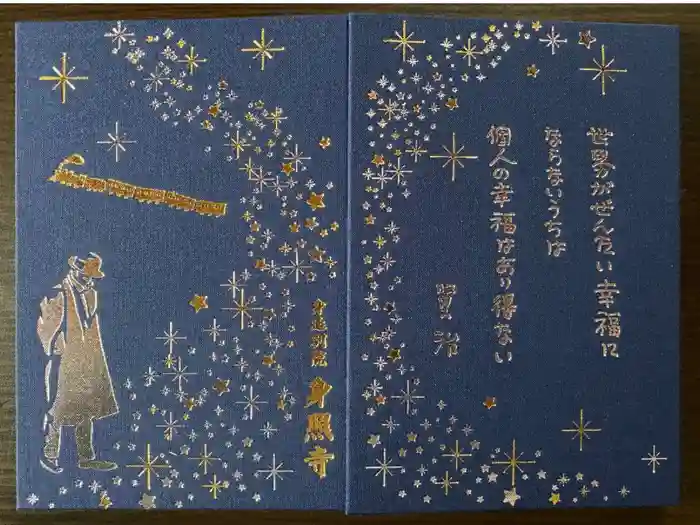 世界がぜんたい幸福に
ならないうちは
個人の幸福はあり得ない
賢治
身延別院
身照寺